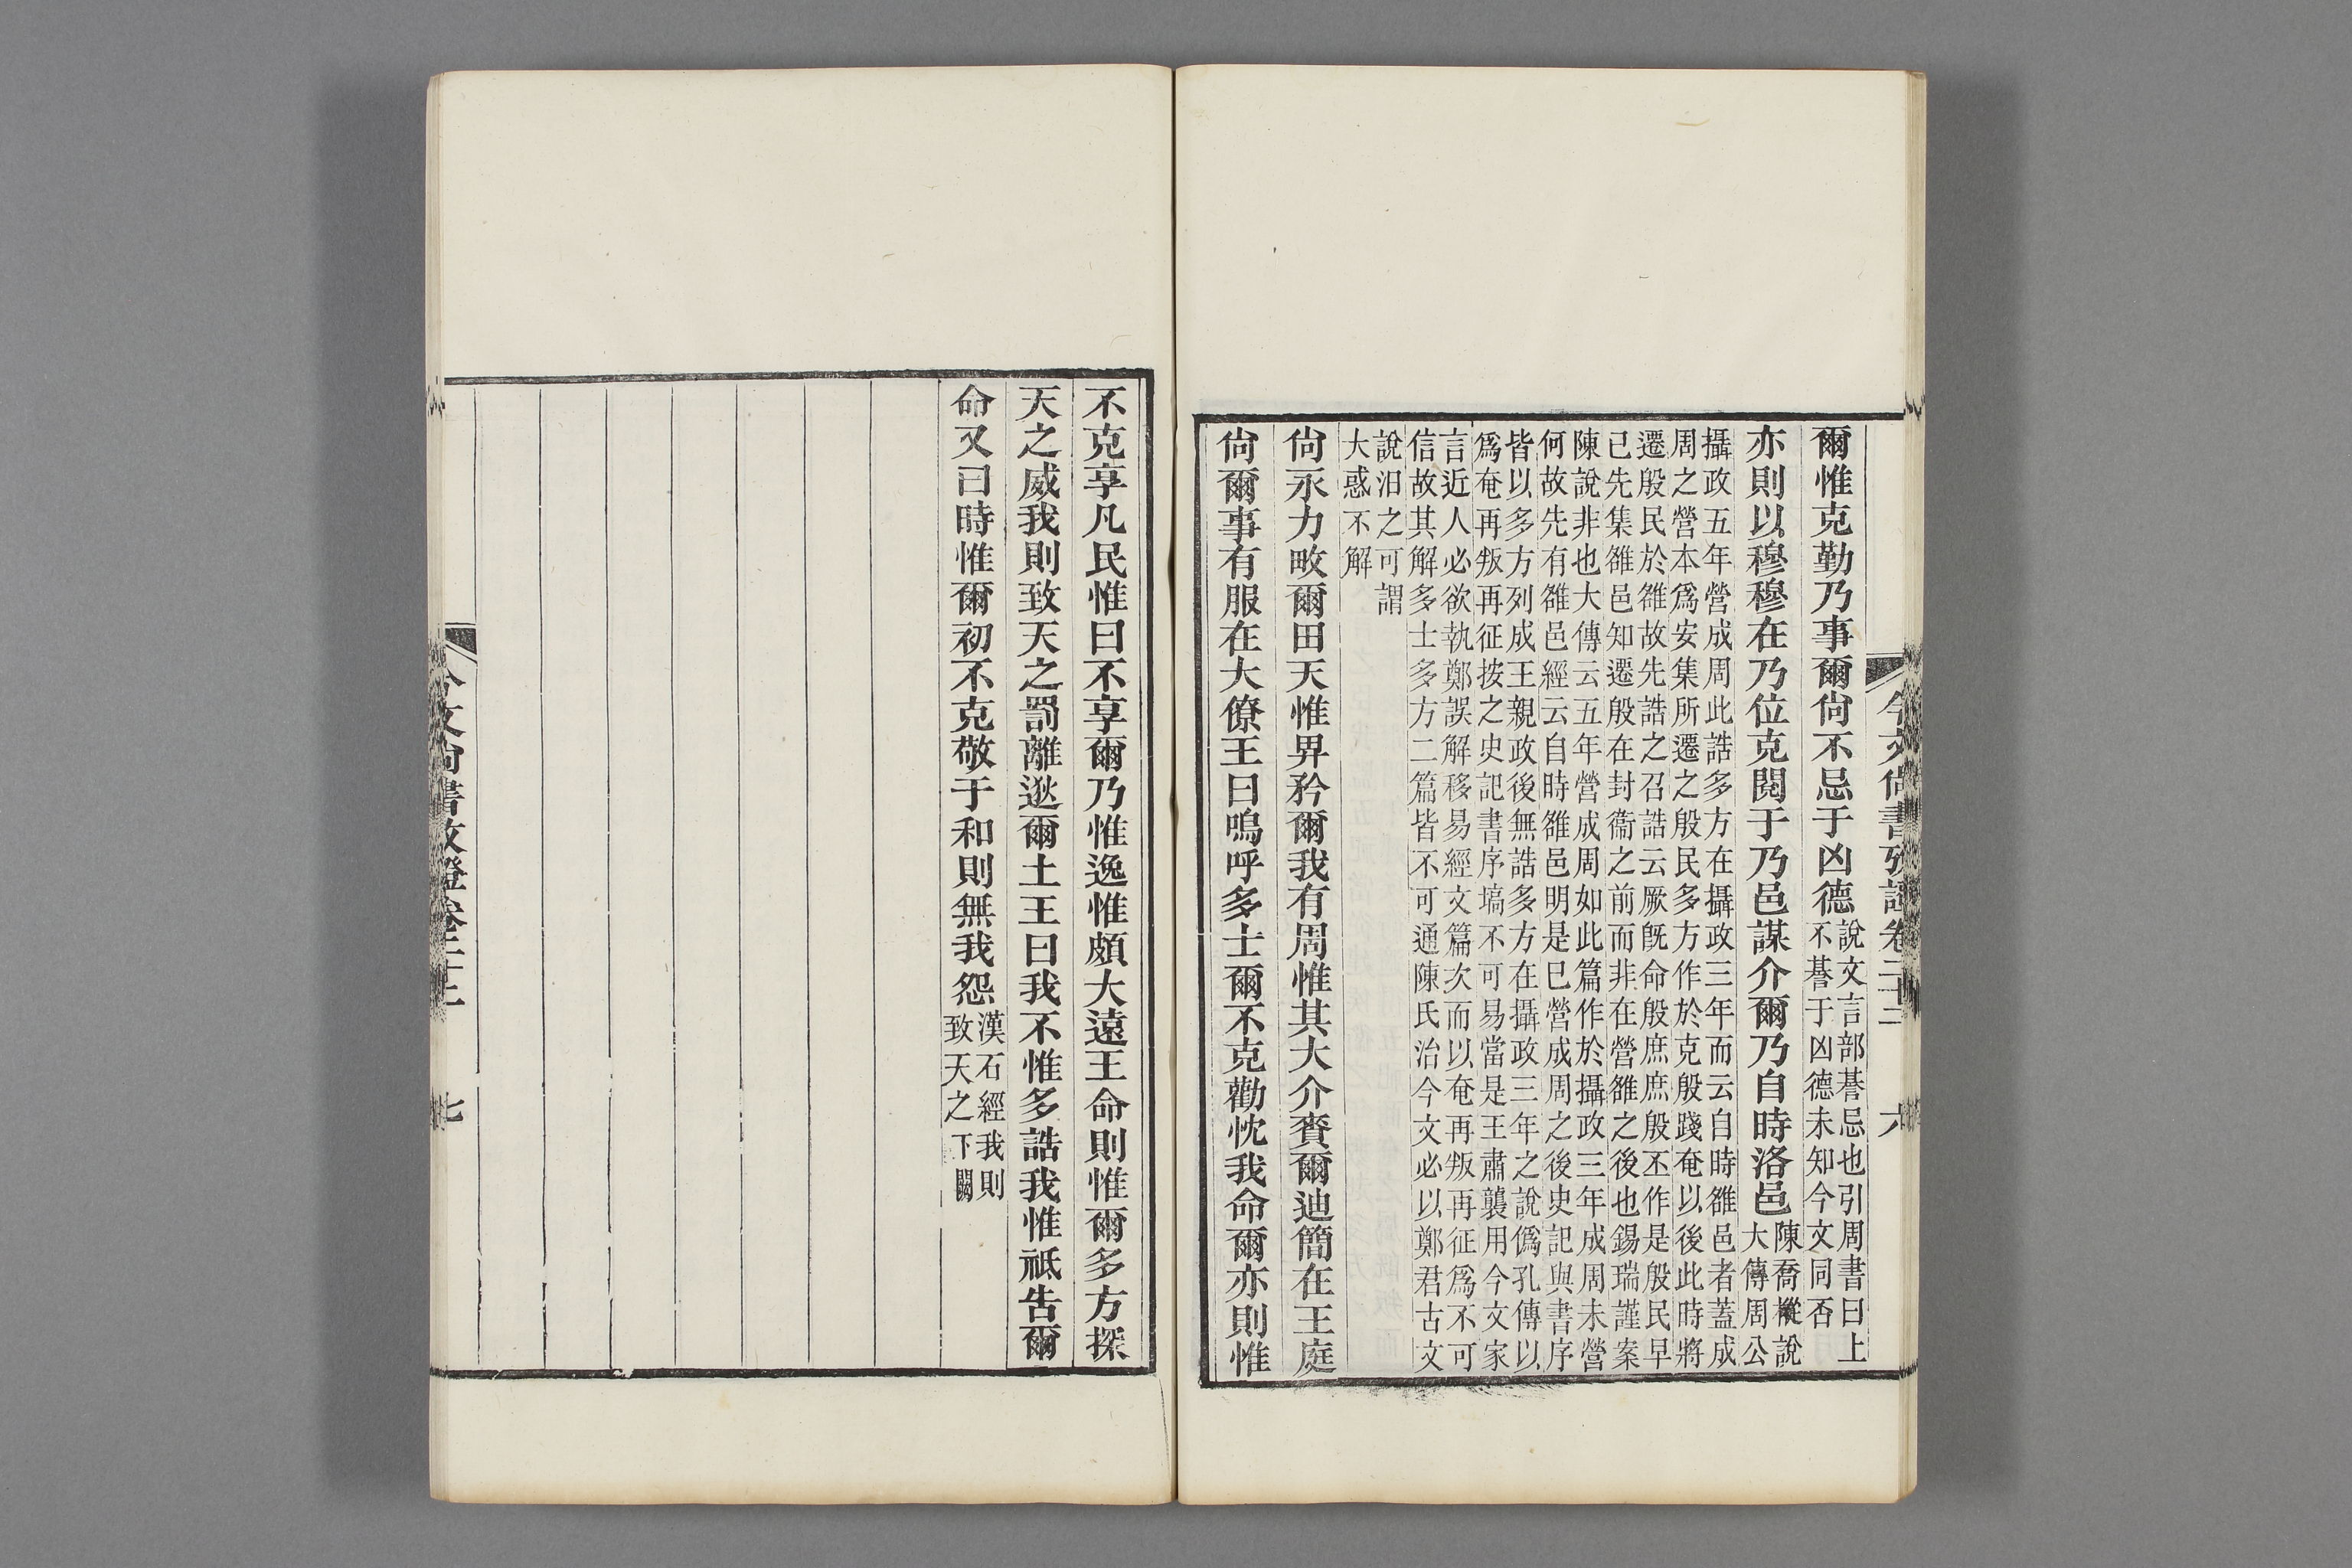 今文尚書攷證卷二十三
六
爾惟克勤乃事爾尙不忌于凶德
說文言部諅忌也引周書曰上
不諅于凶德未知今文同否
亦則以穆穆在乃位克閱于乃邑謀介爾乃自時洛邑
陳喬樅說
大傳周公
攝政五年營成周此誥多方在攝政三年而云自時雒邑者蓋成
周之營本爲安集所遷之殷民多方作於克殷踐奄以後此時將
遷殷民於雒故先誥之召誥云厥旣命殷庶庶殷丕作是殷民早
已先集雒邑知遷殷在封衞之前而非在營雒之後也錫瑞謹案
陳說非也大傳云五年營成周如此篇作於攝政三年成周未營
何故先有雒邑經云自時雒邑明是已營成周之後史記與書序
皆以多方列成王親政後無誥多方在攝政三年之說僞孔傳以
爲奄再叛再征按之史記書序塙不可易當是王肅襲用今文家
言近人必欲執鄭誤解移易經文篇次而以奄再叛再征爲不可
信故其解多士多方二篇皆不可通陳氏治今文必以鄭君古文
說汨之可謂
大惑不解
尙永力畋爾田天惟畀矜爾我有周惟其大介賚爾迪簡在王庭
尙爾事有服在大僚王曰嗚呼多士爾不克勸忱我命爾亦則惟
不克享凡民惟曰不享爾乃惟逸惟頗大遠王命則惟爾多方探
天之威我則致天之罰離逖爾土王曰我不惟多誥我惟祗告爾
命又曰時惟爾初不克敬于和則無我怨
漢石經我則
致天之下闕
今文尚書攷證卷二十三
七